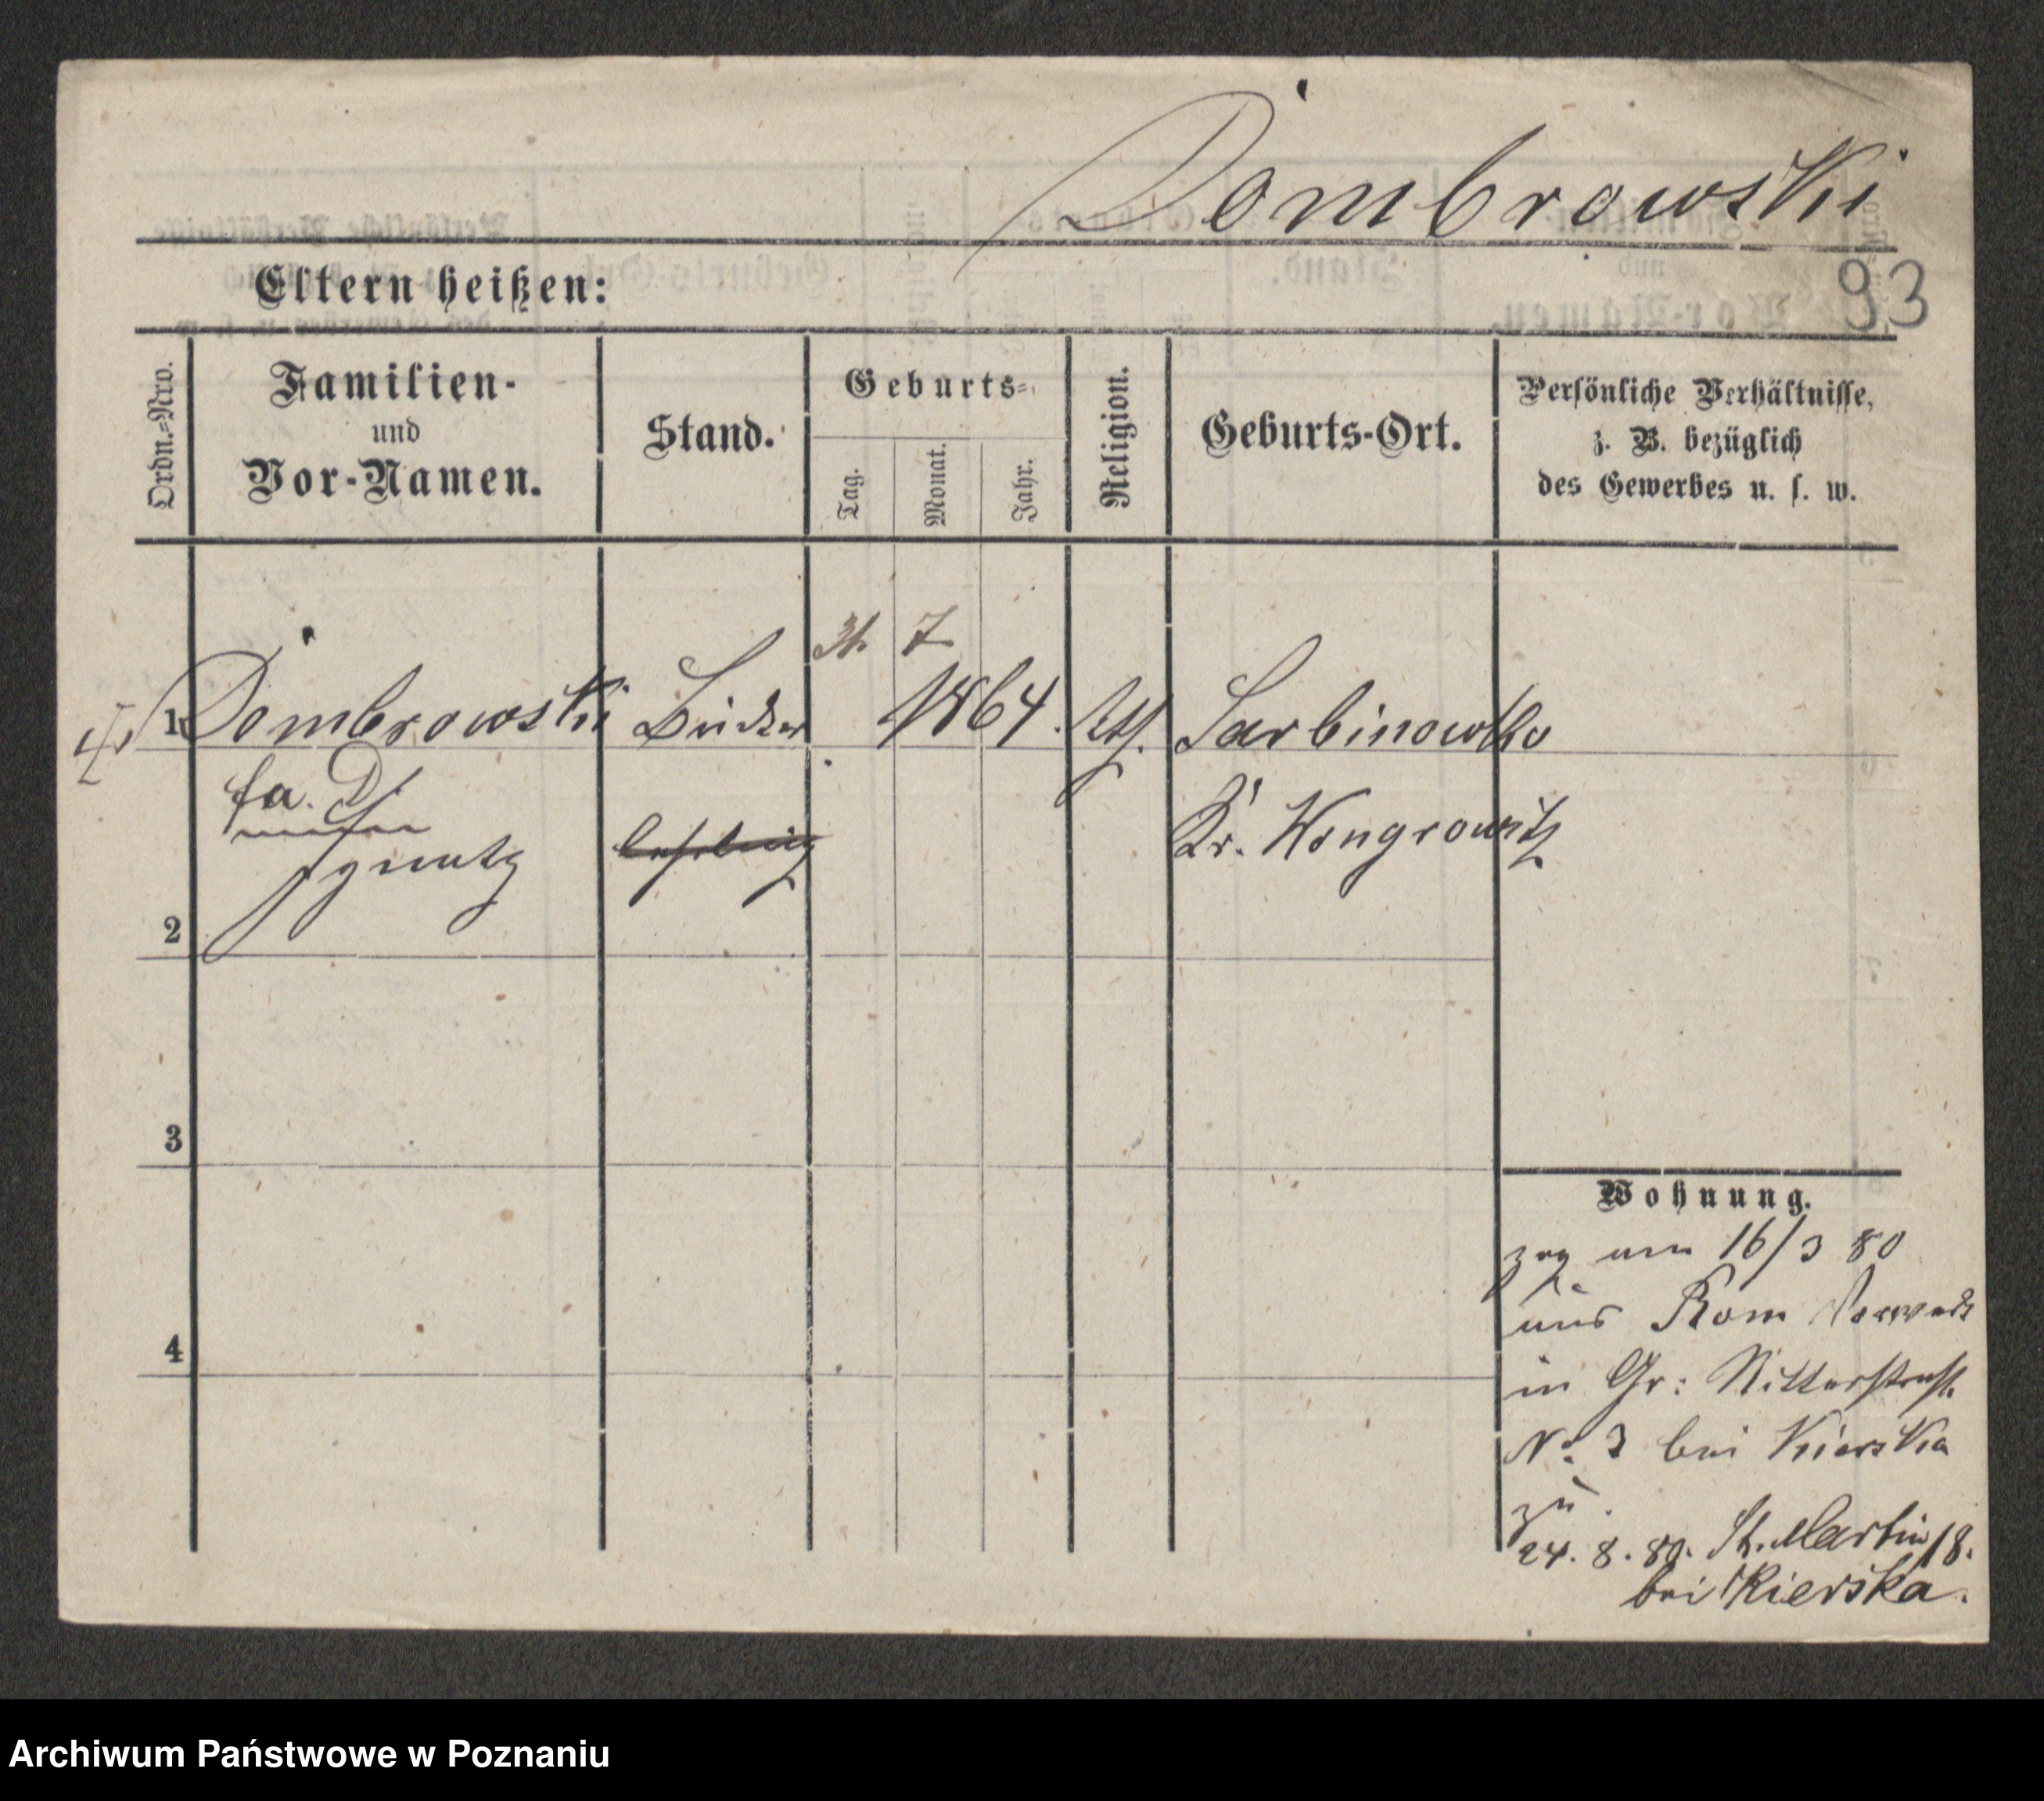 Dombrowski
93
Eltern heißen:
Ordn.-Nro.
Familien-
und
Vor-Namen.
Stand.
Geburts-
Tag.
Monat.
Jahr.
Religion.
Geburts-Ort.
Persönliche Verhältnisse,
z. B. bezüglich
des Gewerbes u. s. w.
31. 7
1 Dombrowski 1864. Sarbinowko
fa. D.
Kr. Wongrowitz
Ignatz
Lehrling
2
3
4
Wohnung.
zog am 16/3 80
aus Rom
in Gr: Ritterstraß.
No. 3 bei Kierska
zu.
24. 8. 80. St. Martin 18.
bei Kierska.
Archiwum Państwowe w Poznaniu